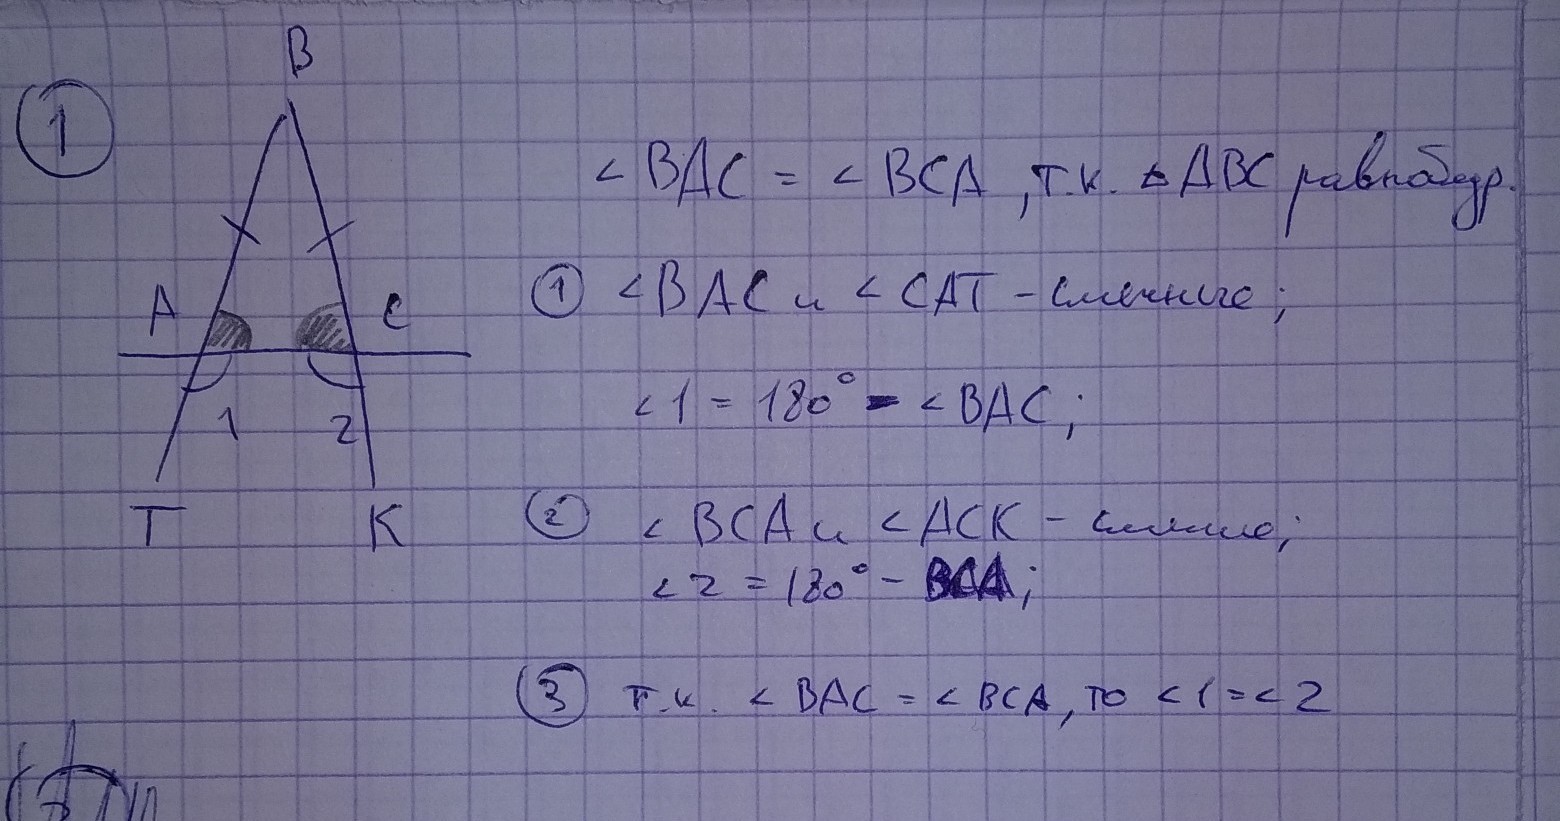 B
①
∠BAC = ∠BCA, т.к. △ABC равнобедр.
① ∠BAC и ∠CAT - смежные;
A
C
∠1 = 180° - ∠BAC;
1
2
T
K
② ∠BCA и ∠ACK - смежные;
∠2 = 180° - BCA;
③ т.к. ∠BAC = ∠BCA, то ∠1 = ∠2